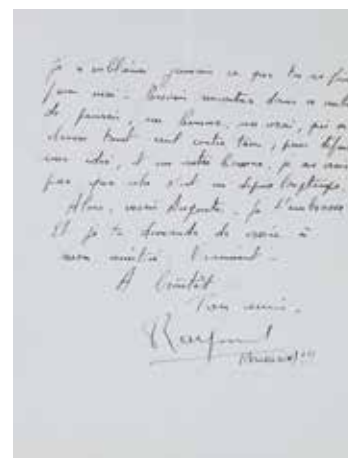 Je n'oublierai jamais ce que tu as fait
pour moi. de
de pouvoir, un homme, un vrai, qui se
dresse tout seul contre tous, pour
une idée, et un autre homme, je ne
pas que cela s'est vu depuis longtemps.
Alors, merci Auguste. Je t'embrasse
Et je te demande de croire à
mon amitié. Vraiment.
A bientôt
Ton ami.
Raymond